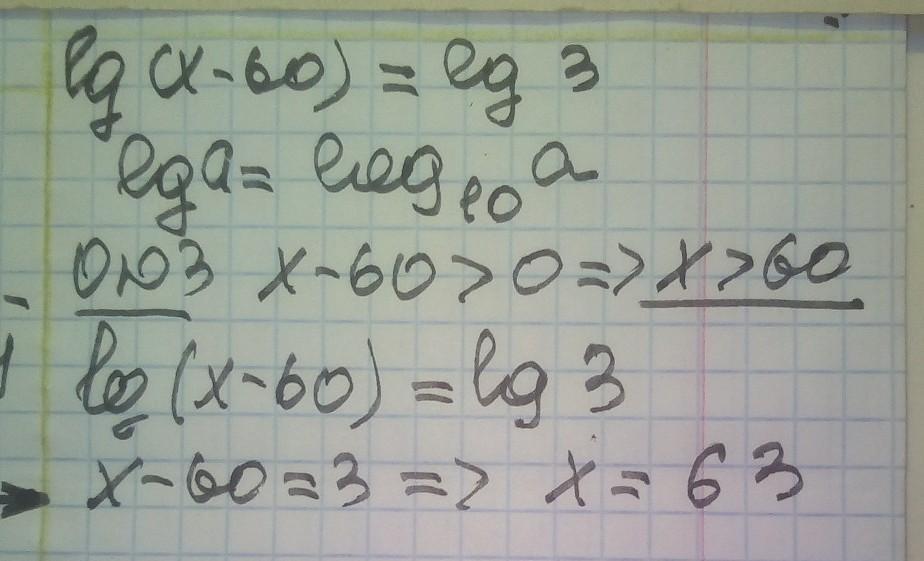 lg (x-60) = lg 3
lg a = log₁₀ a
ОДЗ x-60>0 => x>60
lg (x-60) = lg 3
x-60=3 => x = 63